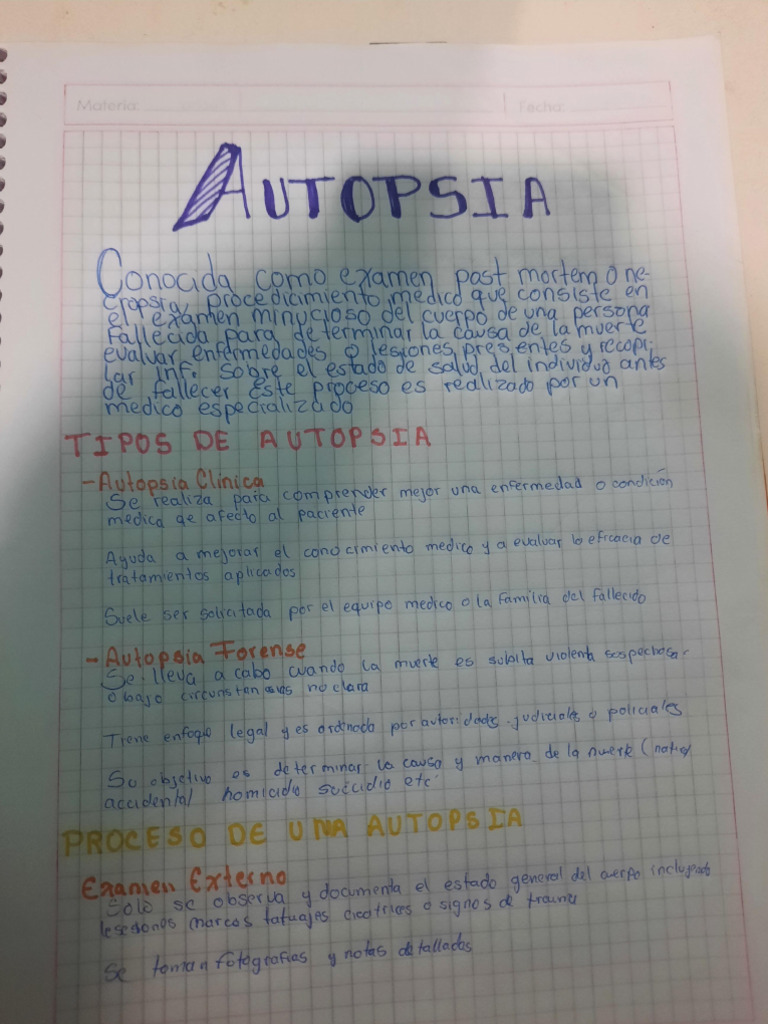 Materia:
Fecha:
AUTOPSIA
Conocida como examen post mortem o ne-
cropsia, procedicimiento medico que consiste en
el examen minucioso del cuerpo de una persona
fallecida para determinar la causa de la muerte
evaluar enfermedades o lesiones presentes y recopi-
lar inf. sobre el estado de salud del individuo antes
de fallecer este proceso es realizado por un
medico especializado
TIPOS DE AUTOPSIA
- Autopsia Clinica
Se realiza para comprender mejor una enfermedad o condición
medica qe afecto al paciente
Ayuda a mejorar el conocimiento medico y a evaluar la eficacia de
tratamientos aplicados
Suele ser solicitada por el equipo medico o la familia del fallecido
- Autopsia Forense
Se lleva a cabo cuando la muerte es subita violenta sospechosa
o bajo no clara
Tiene enfoque legal y es ordinada por autoridades judiciales o policiales
Su objetivo es determinar la causa y manera de la muerte (
accidental homicidio suicidio etc
PROCESO DE UNA AUTOPSIA
Examen Externo
Solo se observa y documenta el estado general del cuerpo
marcas tatuajes cicatrices o signos de
Se toman fotografias y notas detalladas